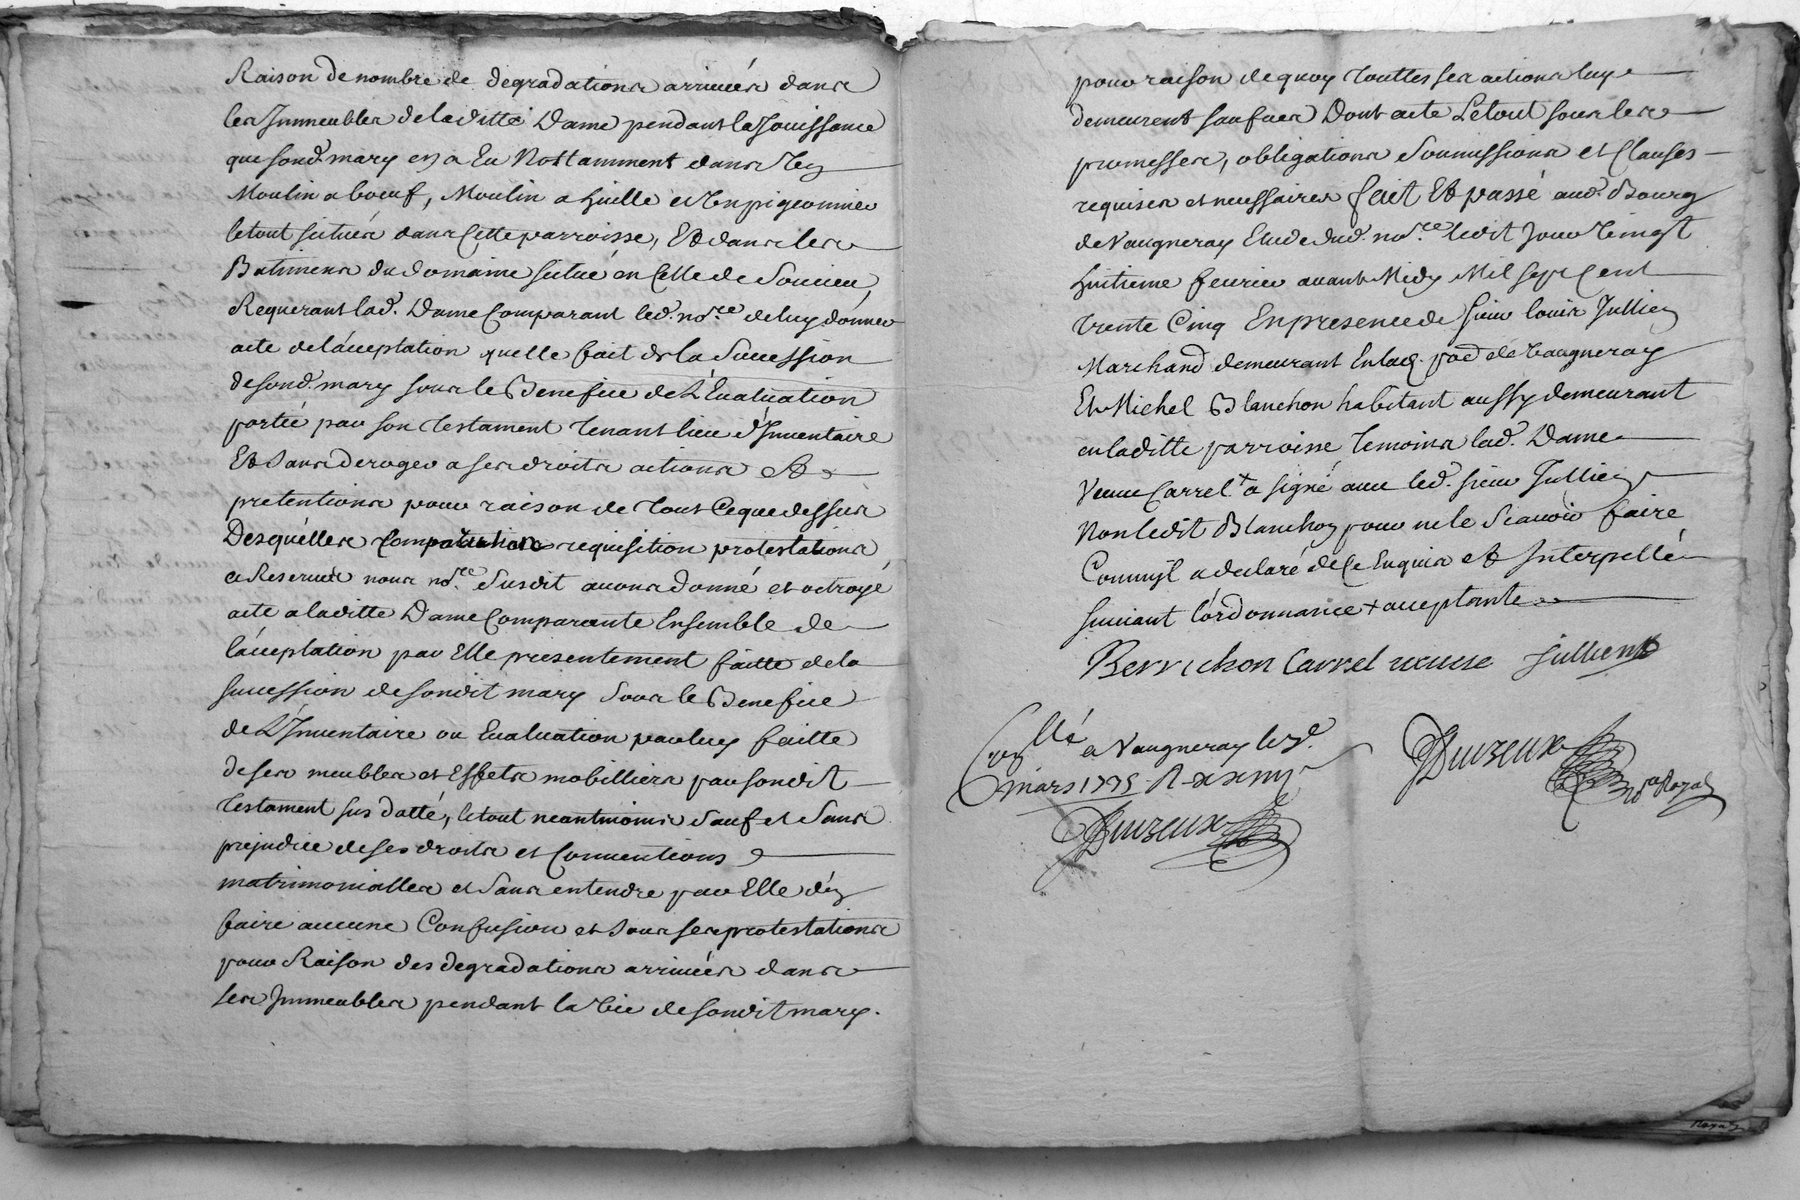 Raison de nombre de degradations arrivées dans
les Immeubles de laditte Dame pendant la Jouissance
que sond. mary en a Eu Nottamment dans un
Moulin a boeuf, Moulin a huille et un pigeonnier
le tout situés dans Cette parroisse, Et dans les
Batimens du domaine situé en Celle de Soucieu,
Requerant lad. Dame Comparant led. no.re de luy donner
acte de l'acceptation quelle fait de la Succession
de sond. mary sous le Benefice de L'Evaluation
portée par son testament tenant lieu d'Inventaire
Et sans deroger a ses droits actions Et
pretentions pour raison de tout Ceque dessus
Desquelles requisition protestations
et Reserves nous no.re Susdit avons donné et octroyé
acte a laditte Dame Comparante Ensemble de
l'acceptation par Elle presentement faitte de la
succession de sondit mary Sous le Benefice
de L'Inventaire ou Evaluation par luy faitte
de ses meubles et Effets mobilliers par sondit
testament sus datté, le tout neantmoins Sauf et Sans
prejudice de ses droits et Conventions
matrimonialles et Sans entendre par Elle d'en
faire aucune Confusion et sous ses protestations
pour Raison des degradations arrivées dans
ses Immeubles pendant la vie de sondit mary.
pour raison de quoy touttes ses actions luy
demeurent sauves Dont acte Le tout sous les
promesses, obligations Soumissions et Clauses
requises et necessaires fait Et passé aud. Bourg
de Vaugneray Etude dud. no.re ledit Jour vingt
huitieme fevrier avant Midy Mil sept Cent
trente Cinq En presence de sieur louis Jullien
Marchand demeurant En lad. par. de Vaugneray
Et Michel Blanchon habitant aussy demeurant
en laditte parroisse temoins lad. Dame
Veuve Carrel + a signé avec led. sieur Jullien
Non ledit Blanchon pour ne le Scavoir faire
Comm'il a declaré de Ce Enquis et Interpellé
suivant l'ordonnance + acceptante
Berrichon Carrel veuve Jullien
Con.llé a Vaugneray le 3e.
mars 1735. R
Duzeux
no. Royal
Duzeux